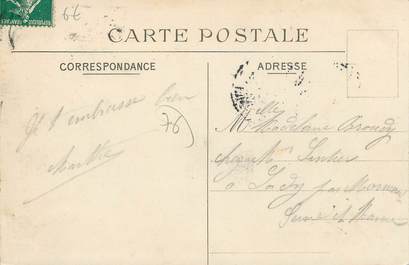 76
CARTE POSTALE
CORRESPONDANCE
ADRESSE
Je t'embrasse bien
Marthe
76
Mlle Madeleine
à par Mormant
Seine et Marne